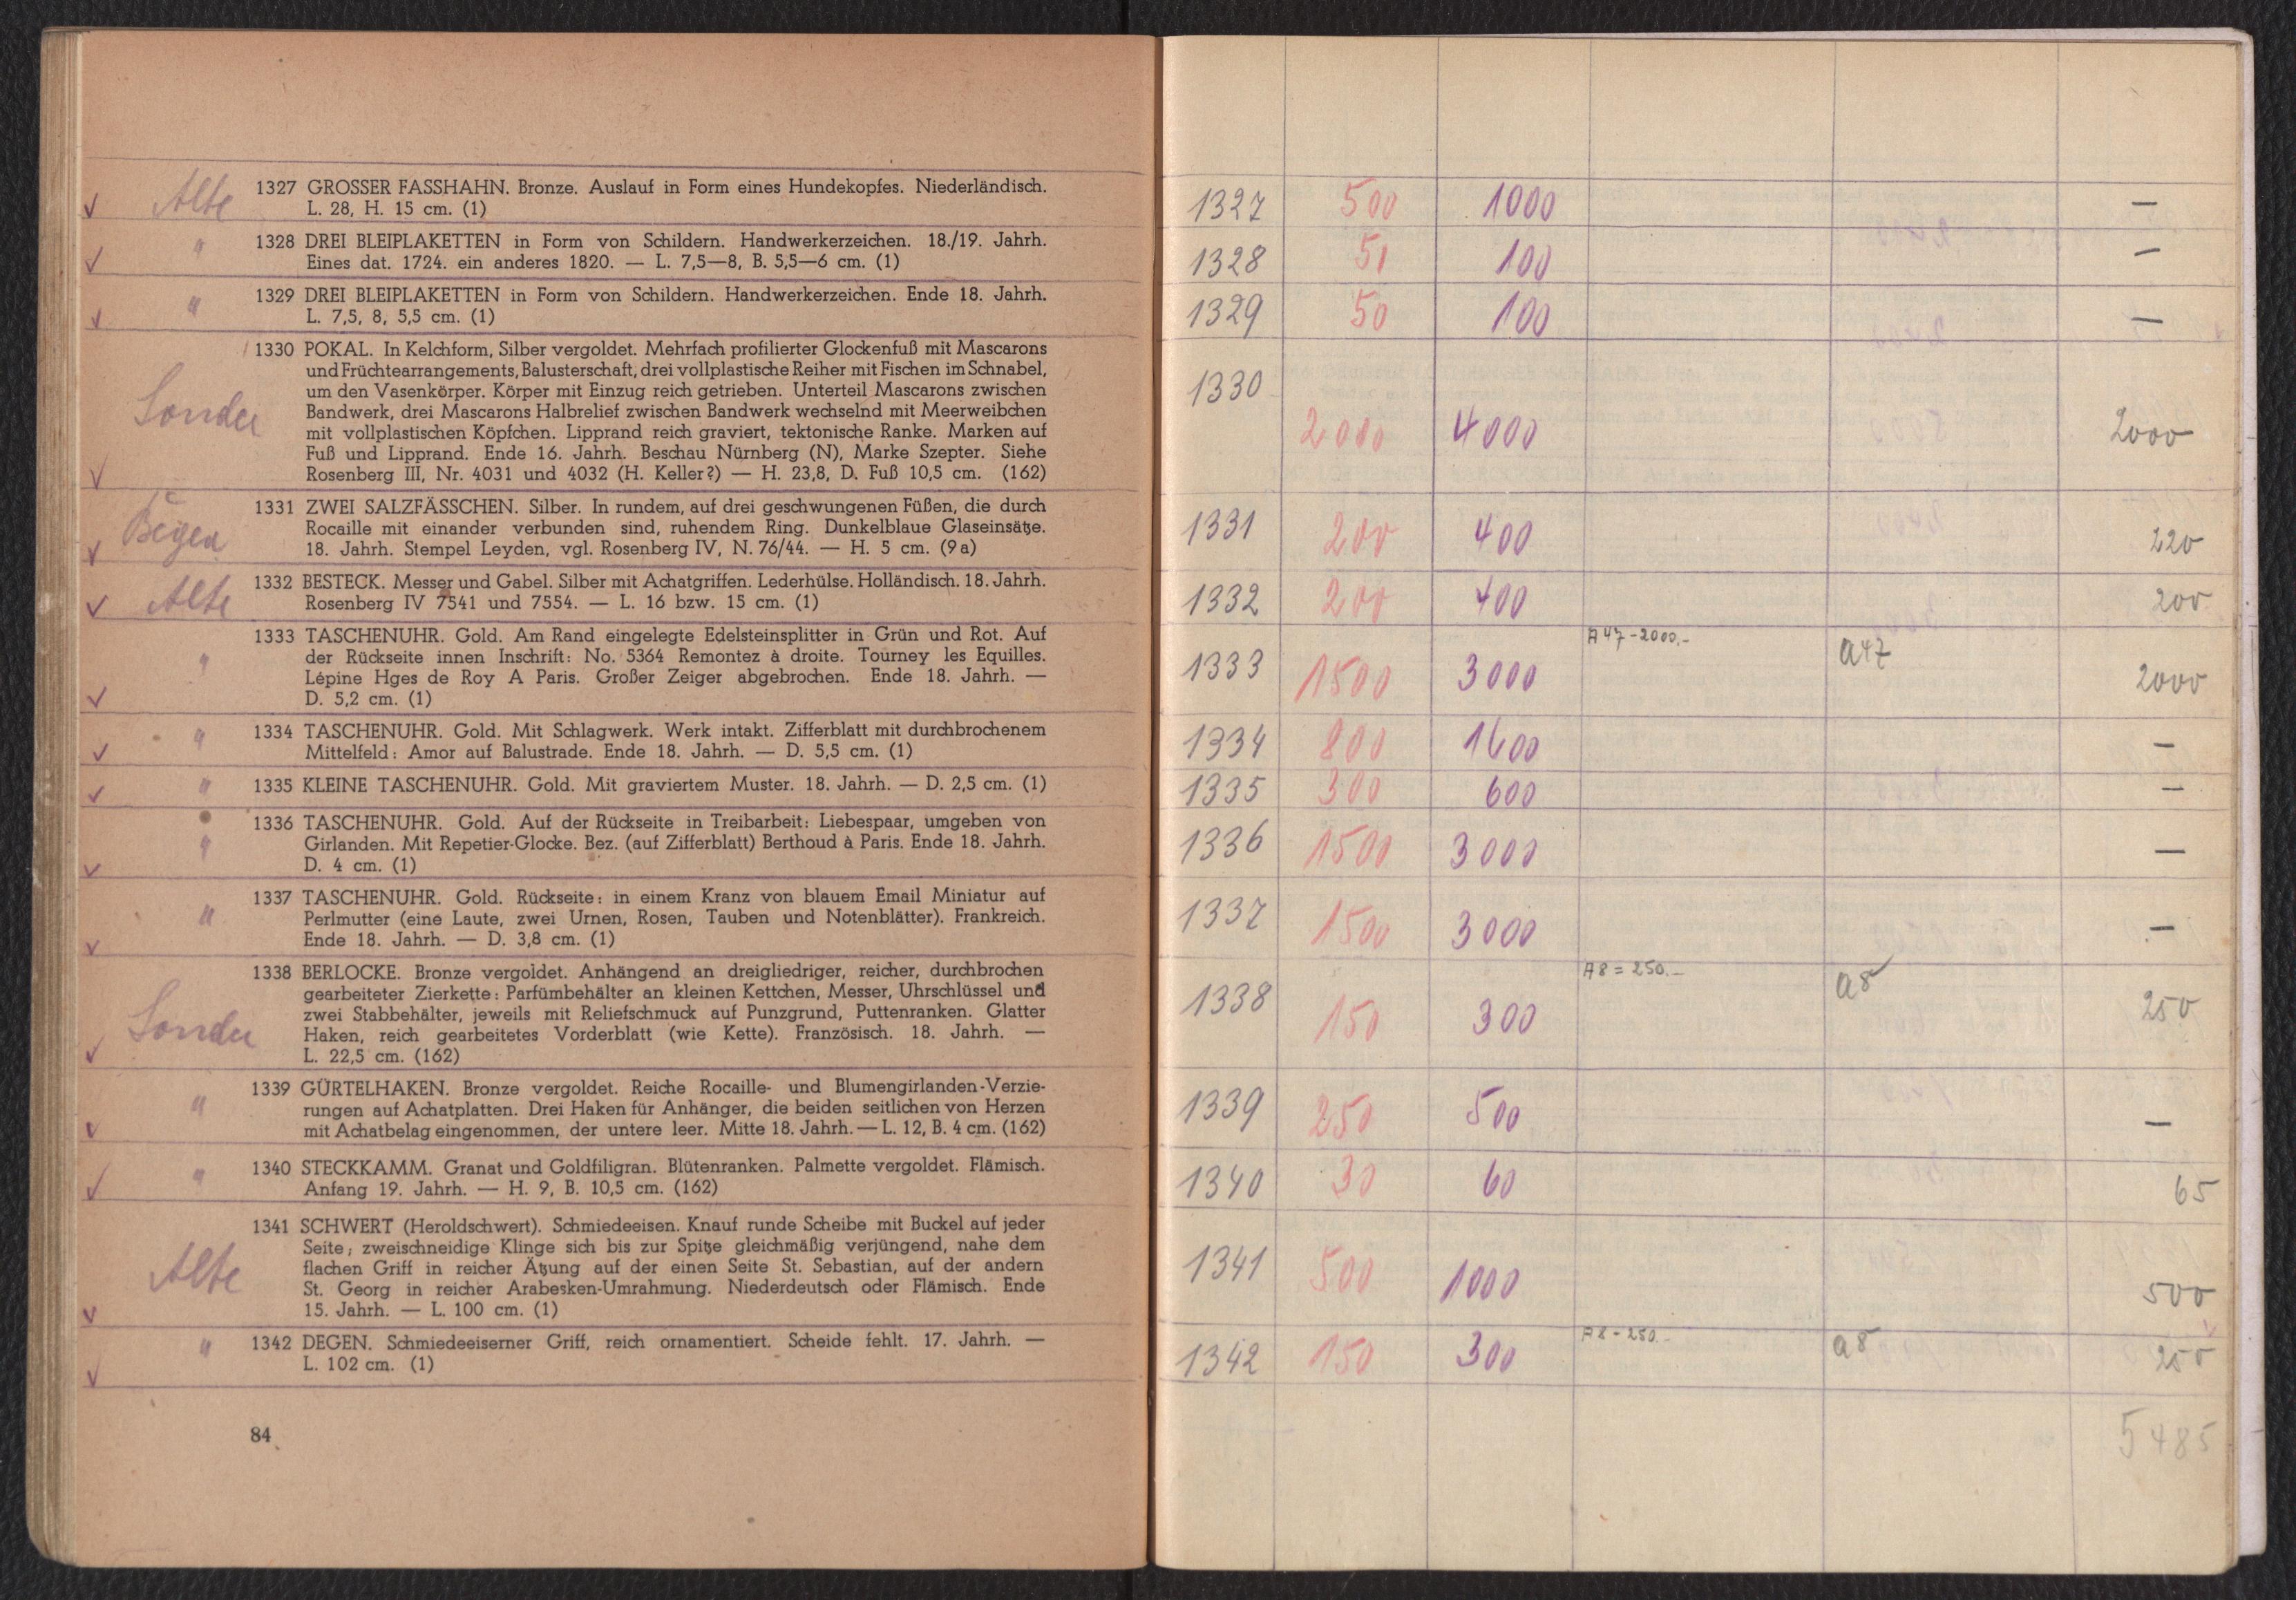 Alte 1327 GROSSER FASSHAHN. Bronze. Auslauf in Form eines Hundekopfes. Niederländisch.
L. 28, H. 15 cm. (1)
" 1328 DREI BLEIPLAKETTEN in Form von Schildern. Handwerkerzeichen. 18./19. Jahrh.
Eines dat. 1724. ein anderes 1820. — L. 7,5—8, B. 5,5—6 cm. (1)
" 1329 DREI BLEIPLAKETTEN in Form von Schildern. Handwerkerzeichen. Ende 18. Jahrh.
L. 7,5, 8, 5,5 cm. (1)
1330 POKAL. In Kelchform, Silber vergoldet. Mehrfach profilierter Glockenfuß mit Mascarons
und Früchtearrangements, Balusterschaft, drei vollplastische Reiher mit Fischen im Schnabel,
um den Vasenkörper. Körper mit Einzug reich getrieben. Unterteil Mascarons zwischen
Sonder Bandwerk, drei Mascarons Halbrelief zwischen Bandwerk wechselnd mit Meerweibchen
mit vollplastischen Köpfchen. Lipprand reich graviert, tektonische Ranke. Marken auf
Fuß und Lipprand. Ende 16. Jahrh. Beschau Nürnberg (N), Marke Szepter. Siehe
Rosenberg III, Nr. 4031 und 4032 (H. Keller?) — H. 23,8, D. Fuß 10,5 cm. (162)
1331 ZWEI SALZFÄSSCHEN. Silber. In rundem, auf drei geschwungenen Füßen, die durch
Rocaille mit einander verbunden sind, ruhendem Ring. Dunkelblaue Glaseinsätze.
18. Jahrh. Stempel Leyden, vgl. Rosenberg IV, N. 76/44. — H. 5 cm. (9a)
Alte 1332 BESTECK. Messer und Gabel. Silber mit Achatgriffen. Lederhülse. Holländisch. 18. Jahrh.
Rosenberg IV 7541 und 7554. — L. 16 bzw. 15 cm. (1)
1333 TASCHENUHR. Gold. Am Rand eingelegte Edelsteinsplitter in Grün und Rot. Auf
" der Rückseite innen Inschrift: No. 5364 Remontez à droite. Tourney les Equilles.
Lépine Hges de Roy A Paris. Großer Zeiger abgebrochen. Ende 18. Jahrh. —
D. 5,2 cm. (1)
" 1334 TASCHENUHR. Gold. Mit Schlagwerk. Werk intakt. Zifferblatt mit durchbrochenem
Mittelfeld: Amor auf Balustrade. Ende 18. Jahrh. — D. 5,5 cm. (1)
" 1335 KLEINE TASCHENUHR. Gold. Mit graviertem Muster. 18. Jahrh. — D. 2,5 cm. (1)
1336 TASCHENUHR. Gold. Auf der Rückseite in Treibarbeit: Liebespaar, umgeben von
" Girlanden. Mit Repetier-Glocke. Bez. (auf Zifferblatt) Berthoud à Paris. Ende 18. Jahrh.
D. 4 cm. (1)
1337 TASCHENUHR. Gold. Rückseite: in einem Kranz von blauem Email Miniatur auf
" Perlmutter (eine Laute, zwei Urnen, Rosen, Tauben und Notenblätter). Frankreich.
Ende 18. Jahrh. — D. 3,8 cm. (1)
1338 BERLOCKE. Bronze vergoldet. Anhängend an dreigliedriger, reicher, durchbrochen
gearbeiteter Zierkette: Parfümbehälter an kleinen Kettchen, Messer, Uhrschlüssel und
zwei Stabbehälter, jeweils mit Reliefschmuck auf Punzgrund, Puttenranken. Glatter
Sonder Haken, reich gearbeitetes Vorderblatt (wie Kette). Französisch. 18. Jahrh. —
L. 22,5 cm. (162)
1339 GÜRTELHAKEN. Bronze vergoldet. Reiche Rocaille- und Blumengirlanden-Verzie-
" rungen auf Achatplatten. Drei Haken für Anhänger, die beiden seitlichen von Herzen
mit Achatbelag eingenommen, der untere leer. Mitte 18. Jahrh. — L. 12, B. 4 cm. (162)
" 1340 STECKKAMM. Granat und Goldfiligran. Blütenranken. Palmette vergoldet. Flämisch.
Anfang 19. Jahrh. — H. 9, B. 10,5 cm. (162)
1341 SCHWERT (Heroldschwert). Schmiedeeisen. Knauf runde Scheibe mit Buckel auf jeder
Seite; zweischneidige Klinge sich bis zur Spitze gleichmäßig verjüngend, nahe dem
Alte flachen Griff in reicher Ätzung auf der einen Seite St. Sebastian, auf der andern
St. Georg in reicher Arabesken-Umrahmung. Niederdeutsch oder Flämisch. Ende
15. Jahrh. — L. 100 cm. (1)
" 1342 DEGEN. Schmiedeeiserner Griff, reich ornamentiert. Scheide fehlt. 17. Jahrh. —
L. 102 cm. (1)
84
1327 500 1000 —
1328 50 100 —
1329 50 100 —
1330 2000 4000 2000
1331 200 400 220
1332 200 400 200
1333 1500 3000 A47-2000.- A47 2000
1334 800 1600 —
1335 300 600 —
1336 1500 3000 —
1337 1500 3000 —
1338 150 300 A8=250.- A8 250
1339 250 500 —
1340 30 60 65
1341 500 1000 500
1342 150 300 A8-250.- A8 250
5485